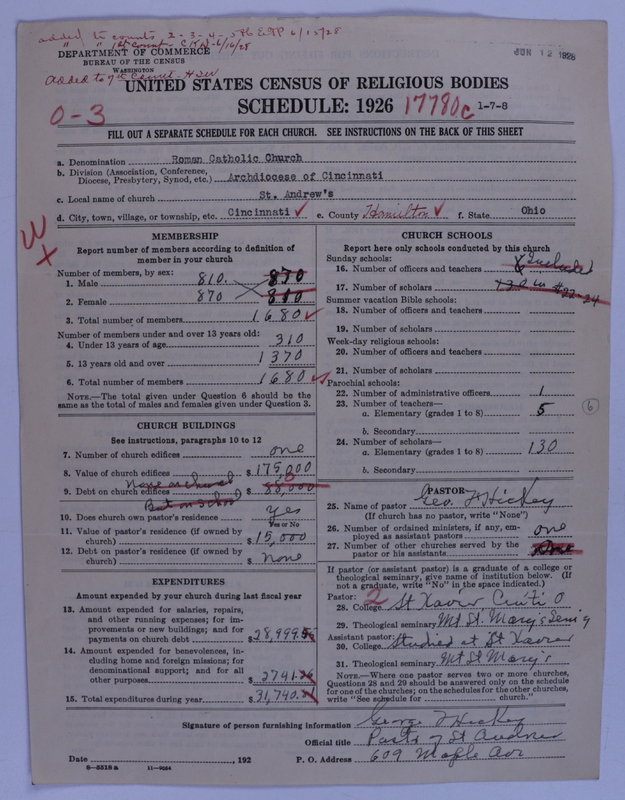 added to counts 2-3-4-5th EAP 6/15/28
" " 1st Count - CKN - 6/16/28
DEPARTMENT OF COMMERCE
BUREAU OF THE CENSUS
WASHINGTON
JUN 12 1928
Added to 7th Count - HSW
UNITED STATES CENSUS OF RELIGIOUS BODIES
SCHEDULE: 1926 17780c 1-7-8
0-3
FILL OUT A SEPARATE SCHEDULE FOR EACH CHURCH. SEE INSTRUCTIONS ON THE BACK OF THIS SHEET
a. Denomination Roman Catholic Church
b. Division (Association, Conference, Diocese, Presbytery, Synod, etc.) Archdiocese of Cincinnati
c. Local name of church St. Andrew's
d. City, town, village, or township, etc. Cincinnati ✓ e. County Hamilton ✓ f. State Ohio
W
X
MEMBERSHIP
Report number of members according to definition of
member in your church
Number of members, by sex:
1. Male 810. 870
2. Female 870 810
3. Total number of members 1680 ✓
Number of members under and over 13 years old:
4. Under 13 years of age 310
5. 13 years old and over 1370
6. Total number of members 1680 ✓
NOTE.—The total given under Question 6 should be
same as the total of males and females given under Question 3.
CHURCH BUILDINGS
See instructions, paragraphs 10 to 12
7. Number of church edifices one
8. Value of church edifices $175,000
None on church
9. Debt on church edifices $ 85,000
But on School
10. Does church own pastor's residence yes
Yes or No
11. Value of pastor's residence (if owned by
church) $15,000
12. Debt on pastor's residence (if owned by
church) $ none
EXPENDITURES
Amount expended by your church during last fiscal year
13. Amount expended for salaries, repairs,
and other running expenses; for im-
provements or new buildings; and for
payments on church debt $28,999.
14. Amount expended for benevolences, in-
cluding home and foreign missions; for
denominational support; and for all
other purposes $2741.
15. Total expenditures during year $31,740.
CHURCH SCHOOLS
Report here only schools conducted by this church
Sunday schools:
16. Number of officers and teachers Included
17. Number of scholars 130 in #22-24
Summer vacation Bible schools:
18. Number of officers and teachers
19. Number of scholars
Week-day religious schools:
20. Number of officers and teachers
21. Number of scholars
Parochial schools:
22. Number of administrative officers 1
23. Number of teachers—
a. Elementary (grades 1 to 8) 5
6
b. Secondary
24. Number of scholars—
a. Elementary (grades 1 to 8) 130
b. Secondary
PASTOR
25. Name of pastor Geo. F Hickey
(If church has no pastor, write "None")
26. Number of ordained ministers, if any, em-
ployed as assistant pastors one
27. Number of other churches served by the
pastor or his assistants
If pastor (or assistant pastor) is a graduate of a college or
theological seminary, give name of institution below. (If
not a graduate, write "No" in the space indicated.)
Pastor: 2
28. College St Xavier Cinti O
29. Theological seminary Mt St. Mary's Seminy
Assistant pastor:
30. College Studied at St Xavier
31. Theological seminary Mt St Mary's
NOTE.—Where one pastor serves two or more churches,
Questions 28 and 29 should be answered only on the schedule
for one of the churches; on the schedules for the other churches,
write "See schedule for church."
Signature of person furnishing information George F Hickey
Official title Pastor of St Andrews
Date , 192 P. O. Address 609 Maple Ave
8—5518a 11—9264